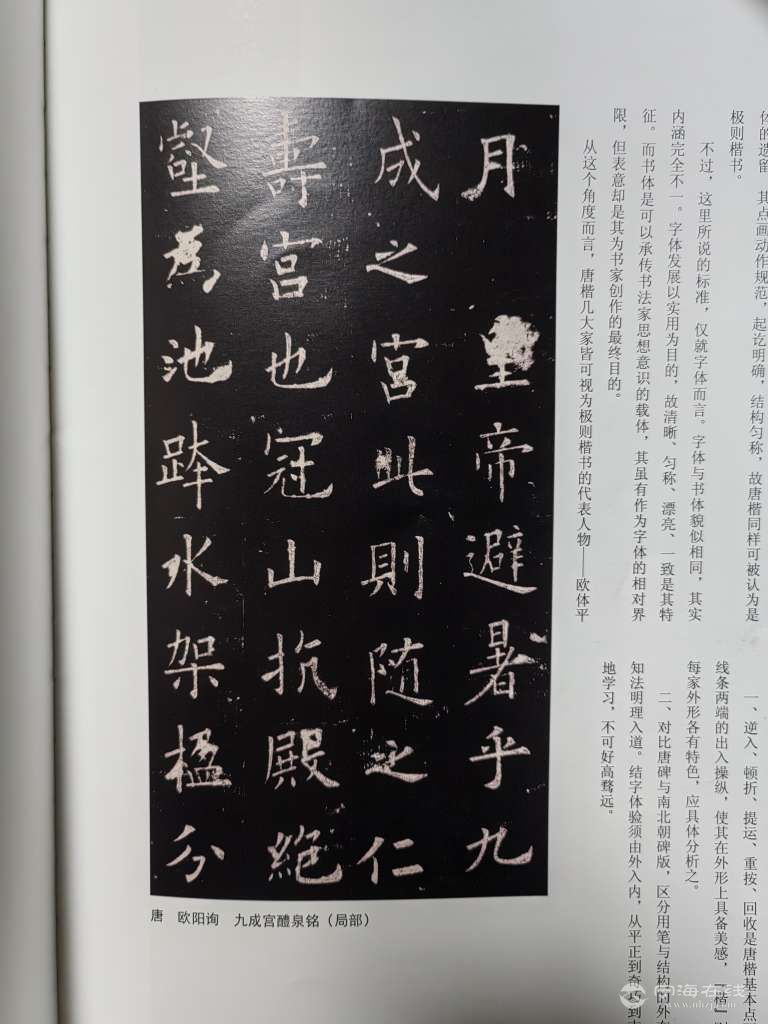 体的遗留
其点画动作规范，起讫明确，结构匀称，故唐楷同样可被认为是
极则楷书。
不过，这里所说的标准，仅就字体而言。字体与书体貌似相同，其实
内涵完全不一。字体发展以实用为目的，故清晰、匀称、漂亮、一致是其特
征。而书体是可以承传书法家思想意识的载体，其虽有作为字体的相对界
限，但表意却是其为书家创作的最终目的。
从这个角度而言，唐楷几大家皆可视为极则楷书的代表人物——欧体平
一、逆入、顿折、提运、重按、回收是唐楷基本点
线条两端的出入操纵，使其在外形上具备美感，“楷”
每家外形各有特色，应具体分析之。
二、对比唐碑与南北朝碑版，区分用笔与结构的外在
知法明理入道。结字体验须由外入内，从平正到奇巧到
地学习，不可好高骛远。
月 皇帝避暑乎九
成之宫此則随之仁
壽宫也冠山抗殿絶
壑為池跨水架楹分
唐 欧阳询 九成宫醴泉铭（局部）
南海在线
www.nhzj.com